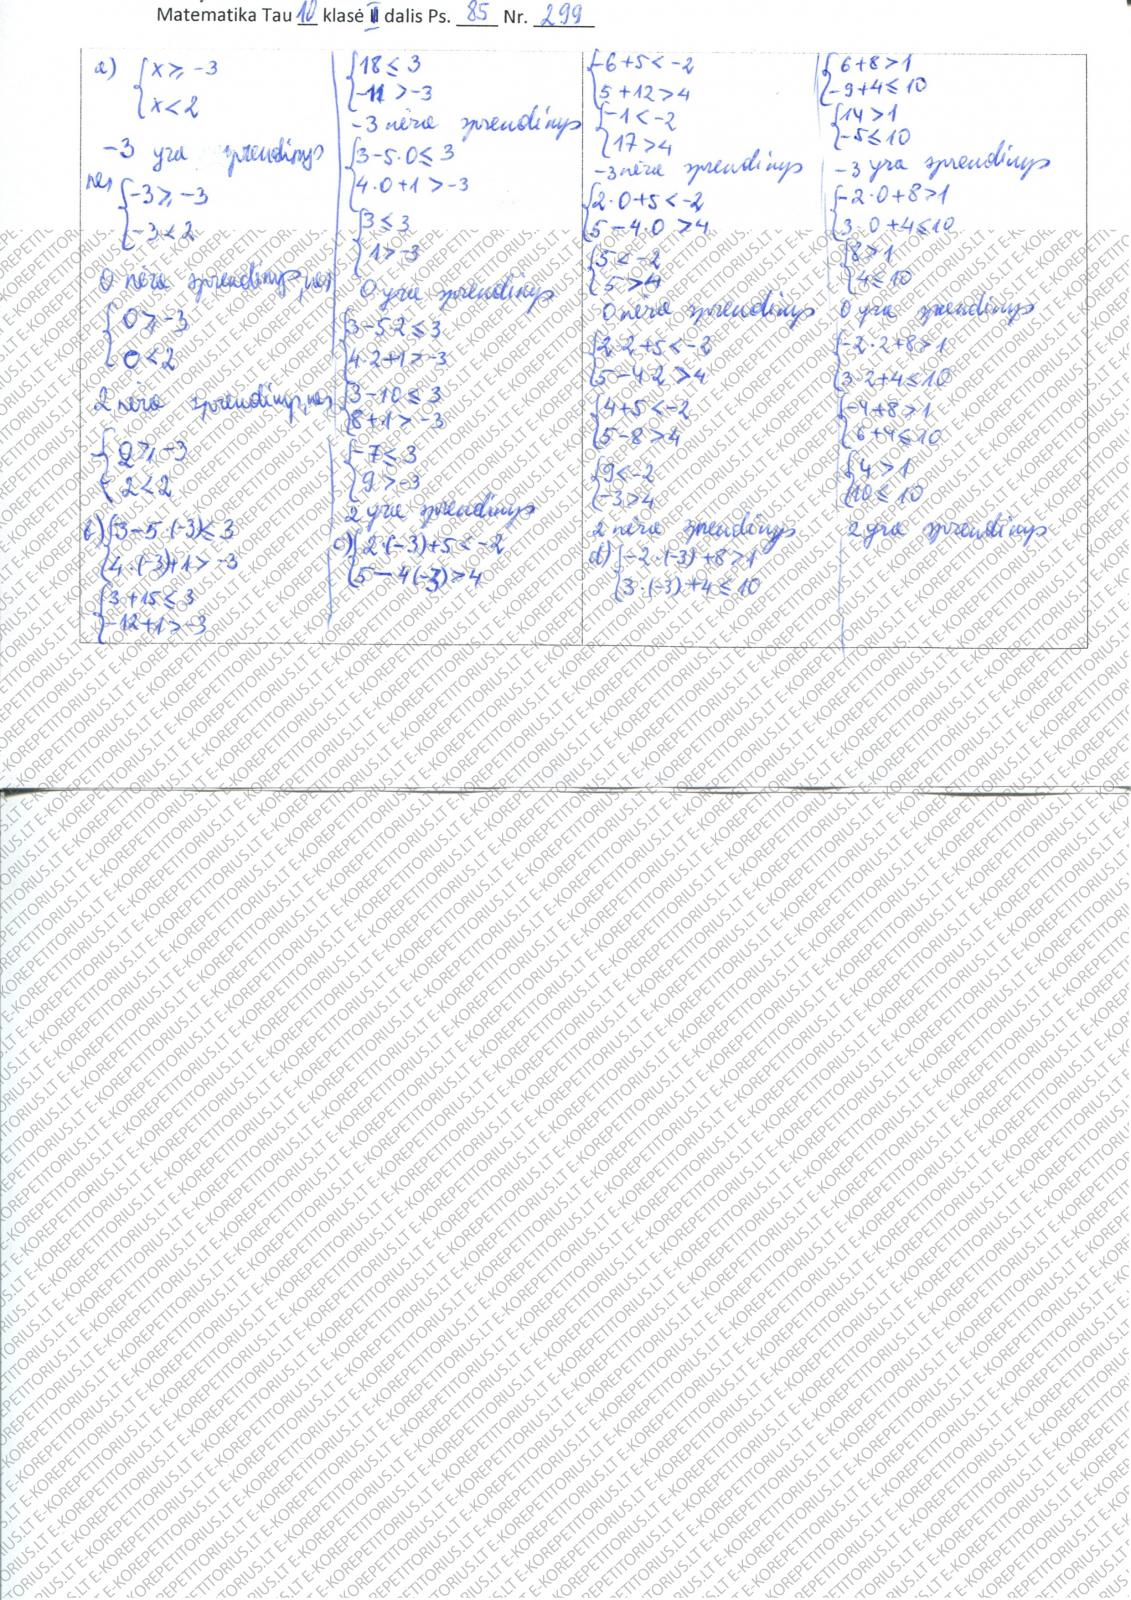 Matematika Tau 10 klasė II dalis Ps. 85 Nr. 299
a) { x ≥ -3
x < 2
-3 yra sprendinys
nes { -3 ≥ -3
-3 < 2
0 nėra sprendinys, nes
{ 0 ≥ -3
0 < 2
2 nėra sprendinys, nes
{ 2 ≥ -3
2 < 2
b) { 3-5·(-3) ≤ 3
4·(-3)+1 > -3
{ 3+15 ≤ 3
-12+1 > -3
{ 18 ≤ 3
-11 > -3
-3 nėra sprendinys
{ 3-5·0 ≤ 3
4·0+1 > -3
{ 3 ≤ 3
1 > -3
0 yra sprendinys
{ 3-5·2 ≤ 3
4·2+1 > -3
{ 3-10 ≤ 3
8+1 > -3
{ -7 ≤ 3
9 > -3
2 yra sprendinys
c) { 2·(-3)+5 < -2
5-4(-3) > 4
{ -6+5 < -2
5+12 > 4
{ -1 < -2
17 > 4
-3 nėra sprendinys
{ 2·0+5 < -2
5-4·0 > 4
{ 5 < -2
5 > 4
0 nėra sprendinys
{ 2·2+5 < -2
5-4·2 > 4
{ 4+5 < -2
5-8 > 4
{ 9 < -2
-3 > 4
2 nėra sprendinys
d) { -2·(-3)+8 > 1
3·(-3)+4 ≤ 10
{ 6+8 > 1
-9+4 ≤ 10
{ 14 > 1
-5 ≤ 10
-3 yra sprendinys
{ -2·0+8 > 1
3·0+4 ≤ 10
{ 8 > 1
4 ≤ 10
0 yra sprendinys
{ -2·2+8 > 1
3·2+4 ≤ 10
{ -4+8 > 1
6+4 ≤ 10
{ 4 > 1
10 ≤ 10
2 yra sprendinys
E-KOREPETITORIUS.LT